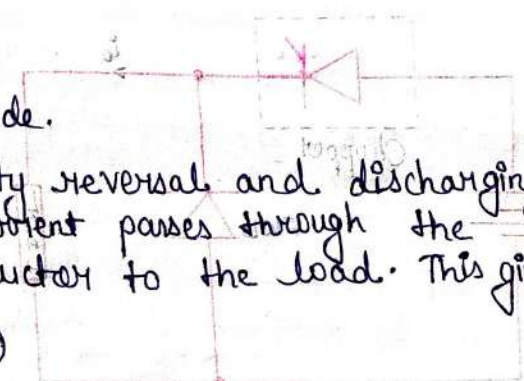 de.
ty reversal and dischargin
rrent passes through the
uctor to the load. This gi
)